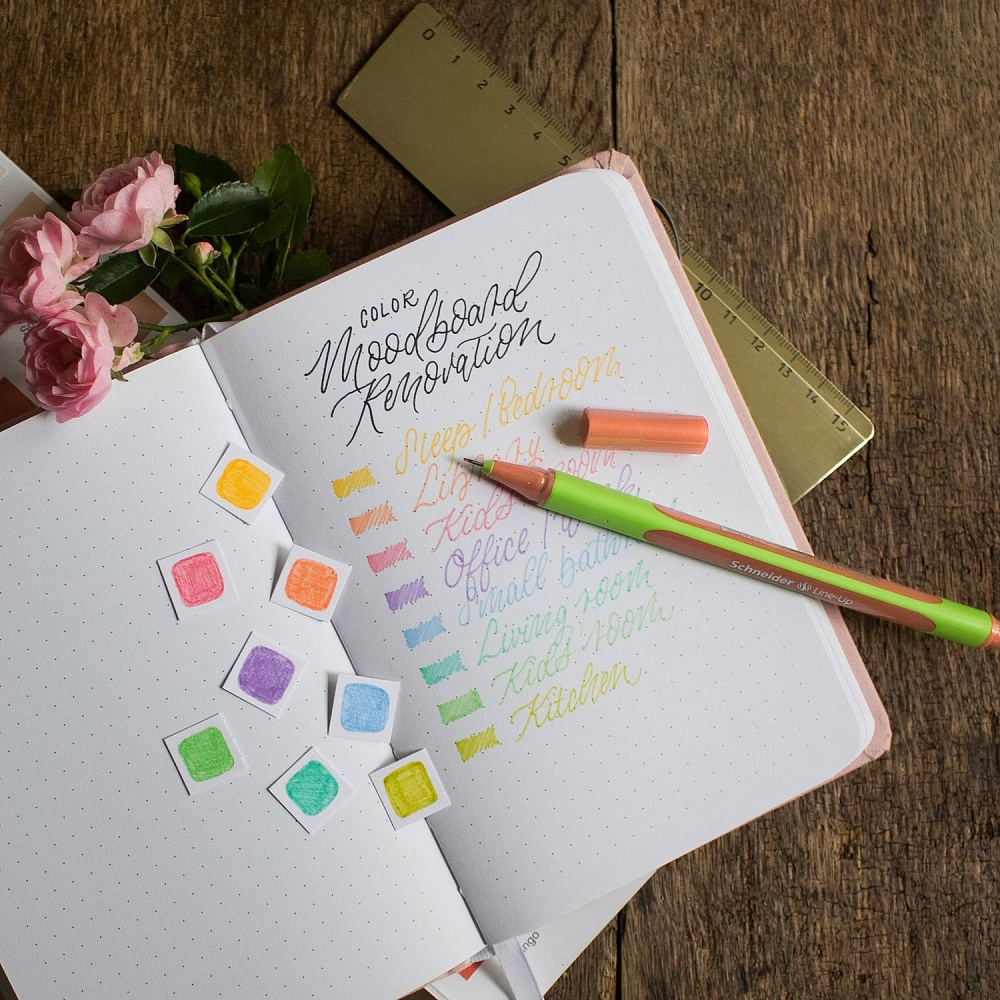 COLOR
Moodboard
Renovation
Sleep / Bedroom
Library
Kid's room
Office /
Small
Living room
Kid's room
Kitchen
0 1 2 3 4 5
10 11 12 13 14 15
Schneider Line-Up